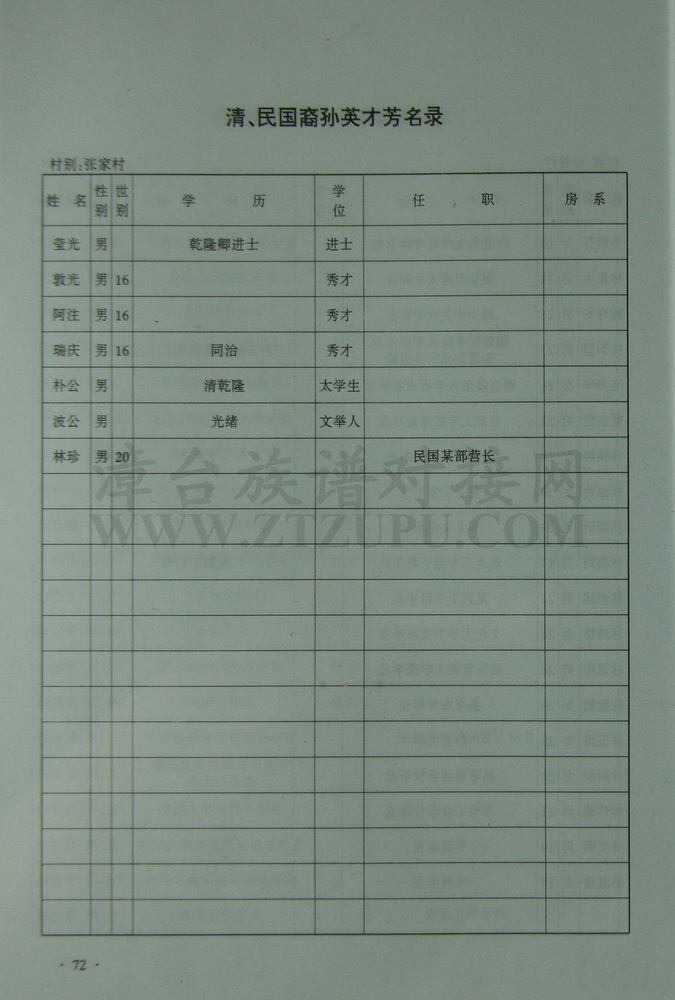 清、民国裔孙英才芳名录
村别:张家村
姓 名 性别 世别 学 历 学位 任 职 房 系
莹光 男 乾隆卿进士 进士
敦光 男 16 秀才
阿注 男 16 秀才
瑞庆 男 16 同治 秀才
朴公 男 清乾隆 太学生
波公 男 光绪 文举人
林珍 男 20 民国某部营长
漳台族谱对接网
WWW.ZTZUPU.COM
· 72 ·